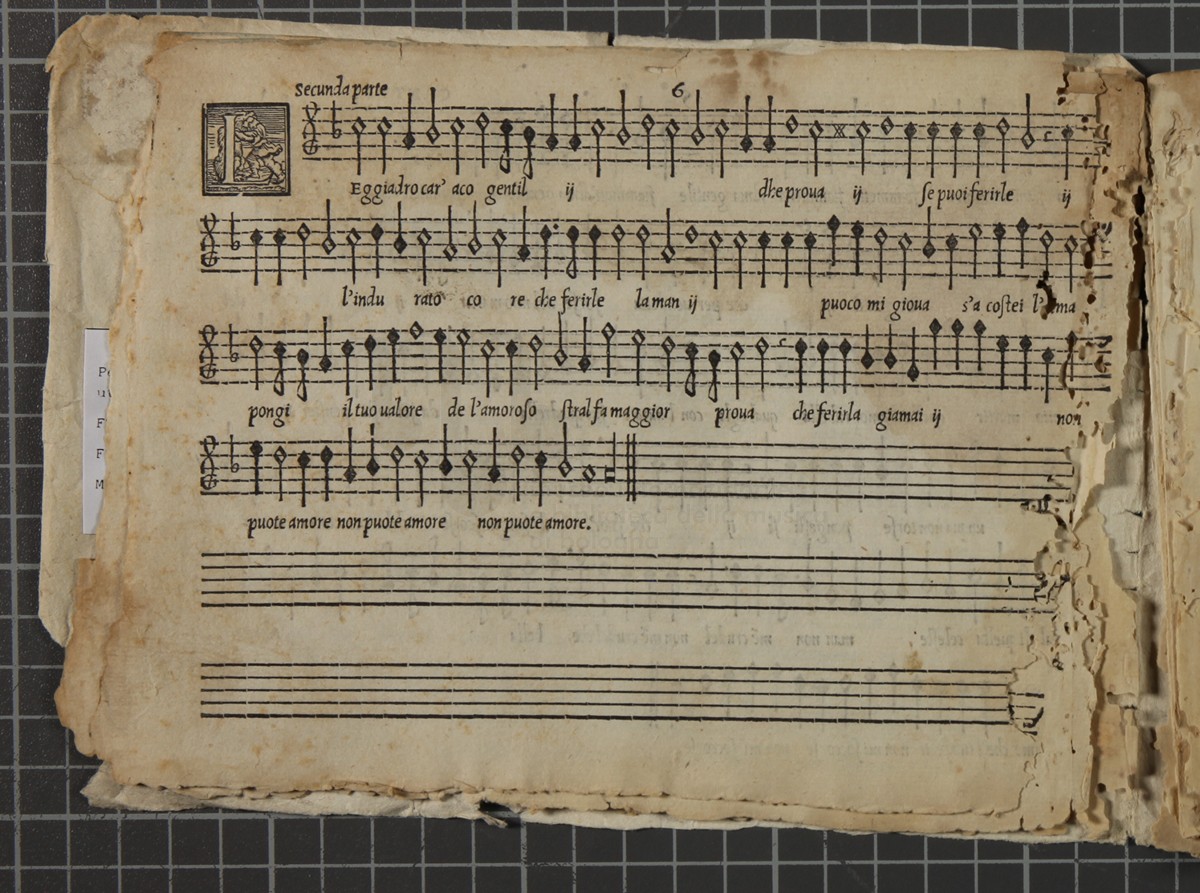 Secunda parte 6
LEggiadro car' aco gentil ij dhe proua ij se puoi ferirle ij
l'indu rato co re che ferirle la man ij puoco mi gioua s'a costei
pongi il tuo ualore de l'amoroso stral fa maggior proua che ferirla giamai ij non
puote amore non puote amore non puote amore.